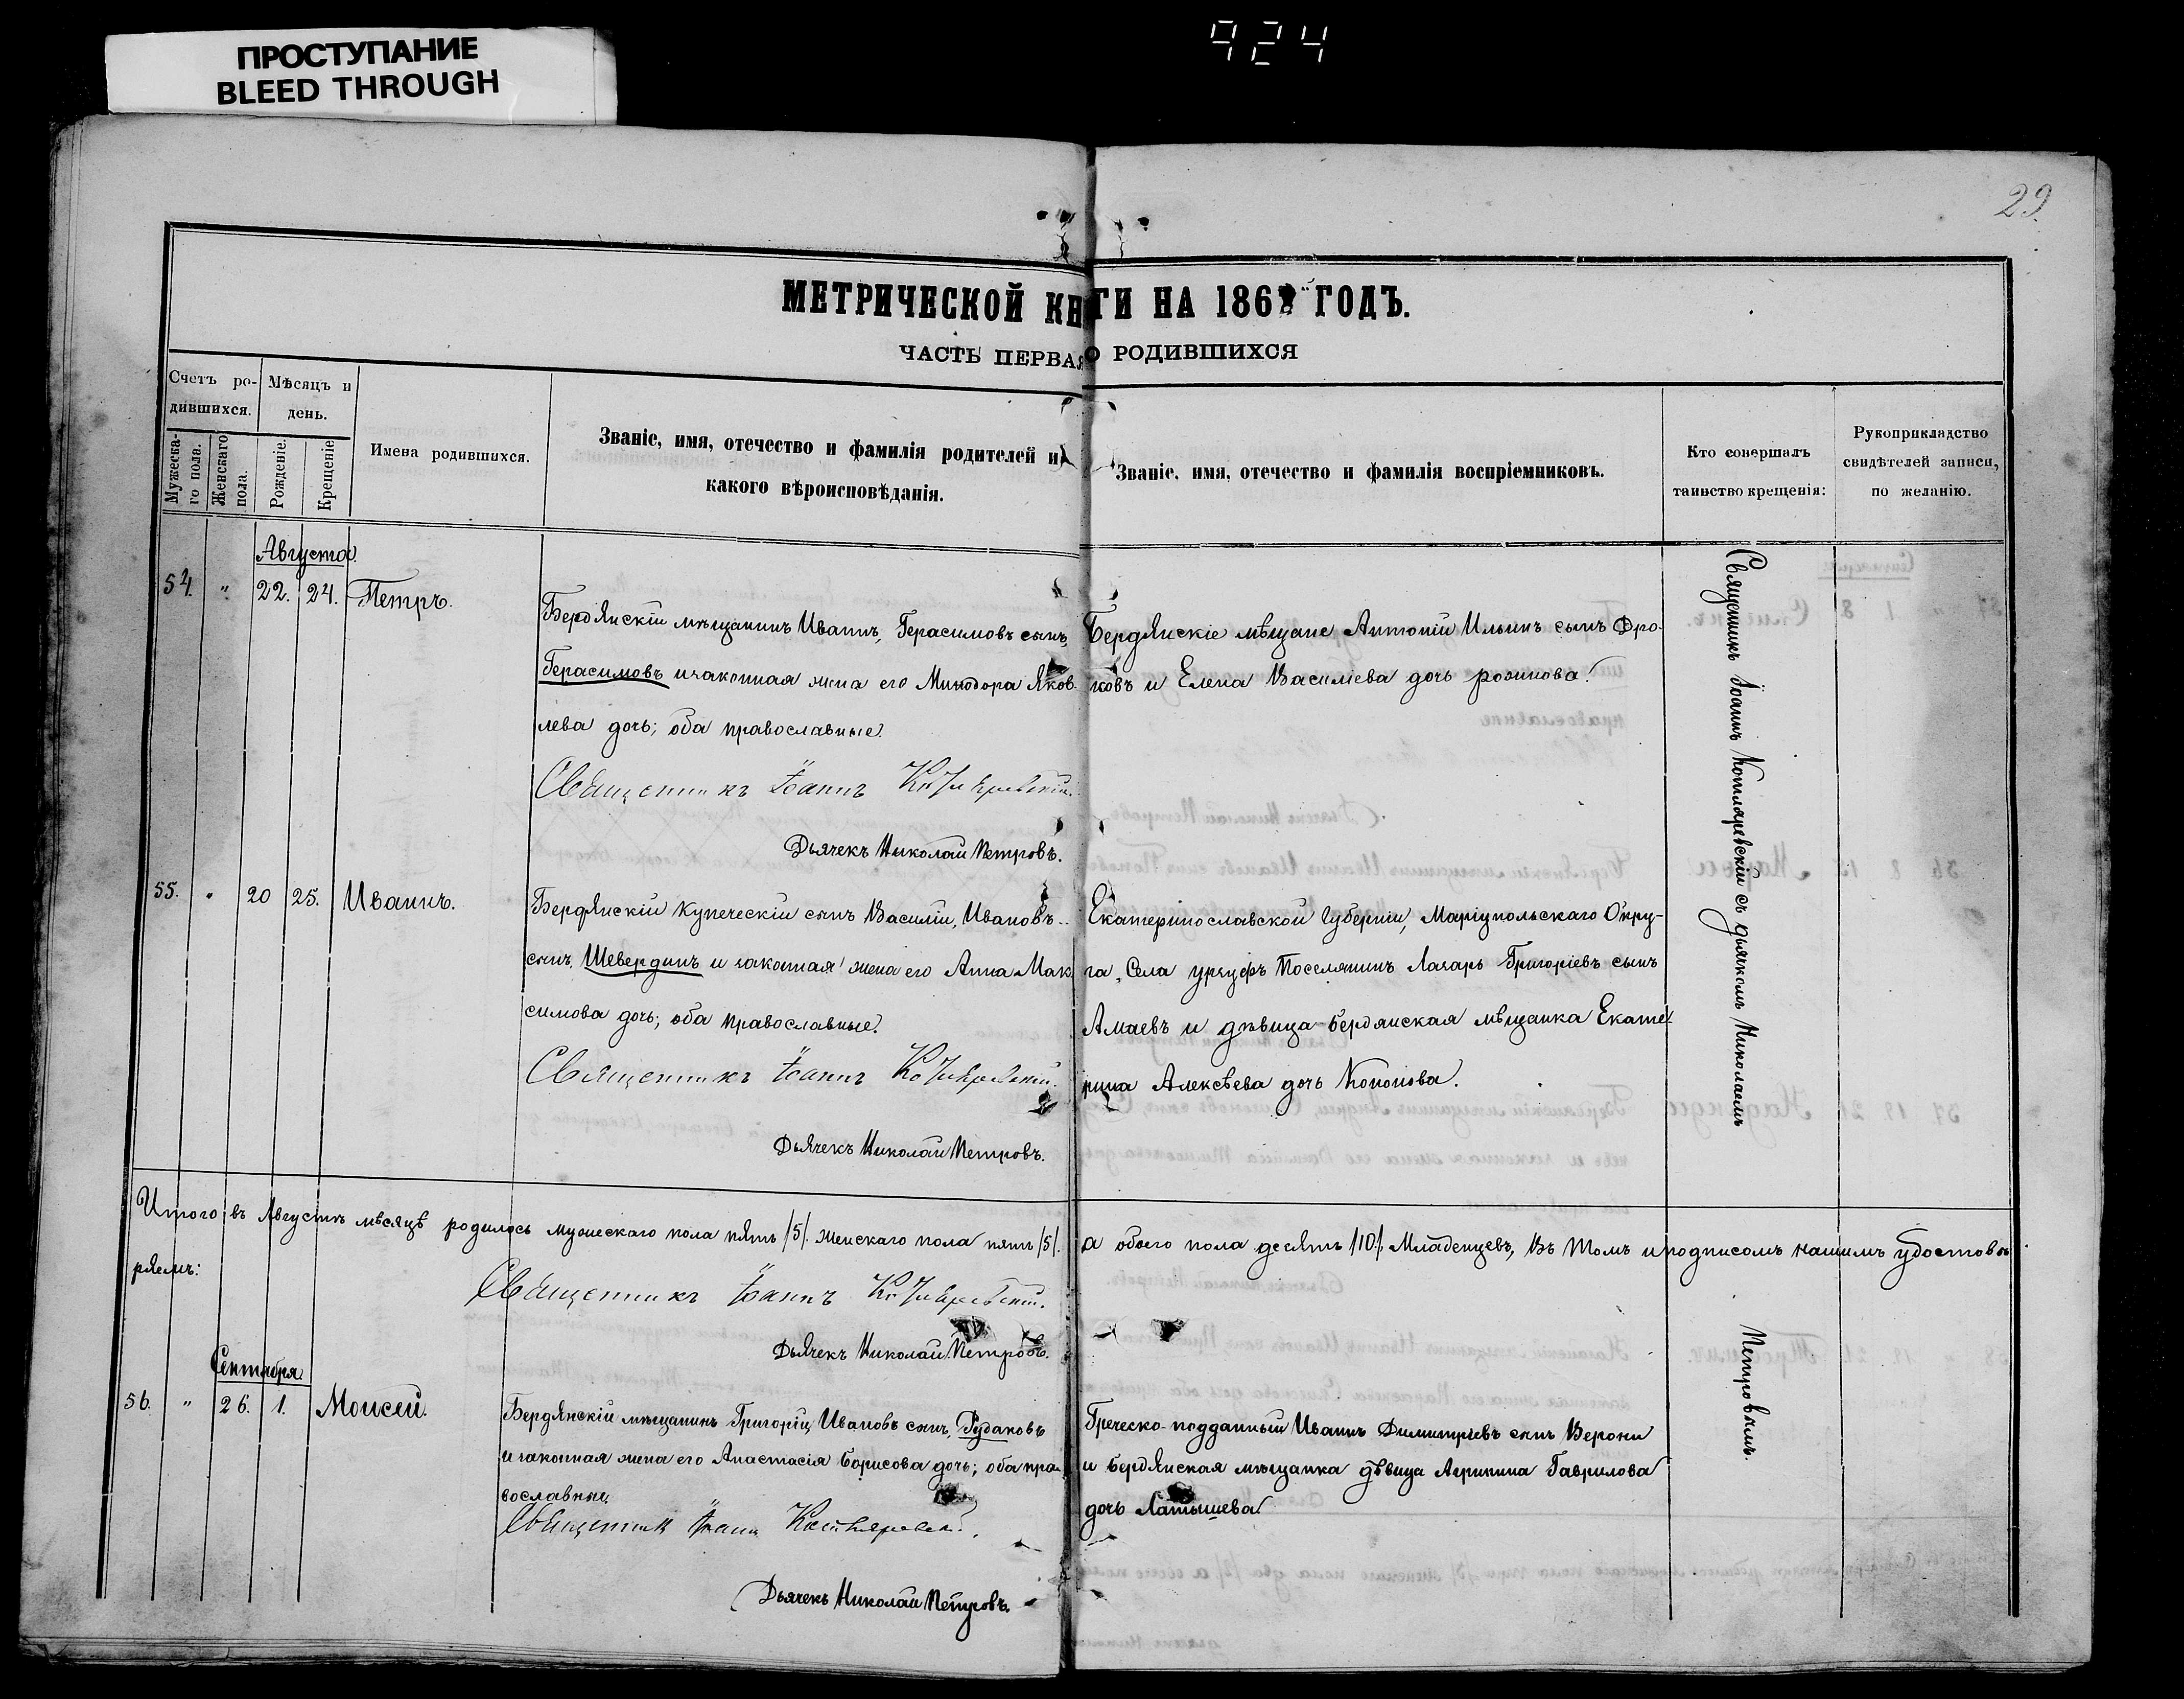 ПРОСТУПАНИЕ
BLEED THROUGH
924
29.
МЕТРИЧЕСКОЙ КНИГИ НА 186 ГОДЪ.
ЧАСТЬ ПЕРВАЯ О РОДИВШИХСЯ
Счетъ ро-
дившихся.
Мѣсяцъ и
день.
Мужеска-
го пола.
Женскаго
пола.
Рожденіе.
Крещеніе
Имена родившихся.
Званіе, имя, отечество и фамилія родителей и
какого вѣроисповѣданія.
Званіе, имя, отечество и фамилія воспріемниковъ.
Кто совершалъ
таинство крещенія:
Рукоприкладство
свидѣтелей записи,
по желанію.
Августа.
54. " 22. 24. Петръ.
Бердянскій мѣщанинъ Иванъ, Герасимовъ сынъ,
Герасимовъ и законная жена его Минодора Яков-
лева дочь; оба православные.
Священникъ Іоаннъ Котляревскій.
Дьячекъ Николай Петровъ.
Бердянскіе мѣщане Антоній Ильинъ сынъ Дро-
ковъ и Елена Василіева дочь
55. " 20 25. Иваннъ.
Бердянскій купеческій сынъ Василій, Ивановъ
сынъ, Шевердинъ и законная жена его Анна Мак-
симова дочь; оба православные.
Священникъ Іоаннъ Котляревскій.
Дьячекъ Николай Петровъ.
Екатеринославской Губерніи, Маріупольскаго Окру-
га, Села урзуфъ Поселянинъ Лазарь Григоріевъ сынъ
Амаевъ и дѣвица Бердянская мѣщанка Екате-
рина Алексѣева дочь Кононова.
Священникъ Іоаннъ Котляревскій съ дьячкомъ Николаемъ
Петровымъ.
Итого въ Августѣ мѣсяцѣ родилось мужескаго пола пять /5/. женскаго пола пять /5/. а обоего пола десять /10/. Младенцевъ, Въ томъ и подписомъ нашимъ удостовѣ-
ряемъ:
Священникъ Іоаннъ Котляревскій.
Дьячекъ Николай Петровъ.
Сентября
56. " 26. 1. Моисей.
Бердянскій мѣщанинъ Григорій, Ивановъ сынъ, Рудаковъ
и законная жена его Анастасія Борисова дочь; оба пра-
вославные
Священникъ Іоаннъ Котляревскій.
Дьячекъ Николай Петровъ.
Греческо-подданный Иванъ Димитріевъ сынъ Верони
и Бердянская мѣщанка дѣвица Агрипина Гаврилова
дочь Латышева.